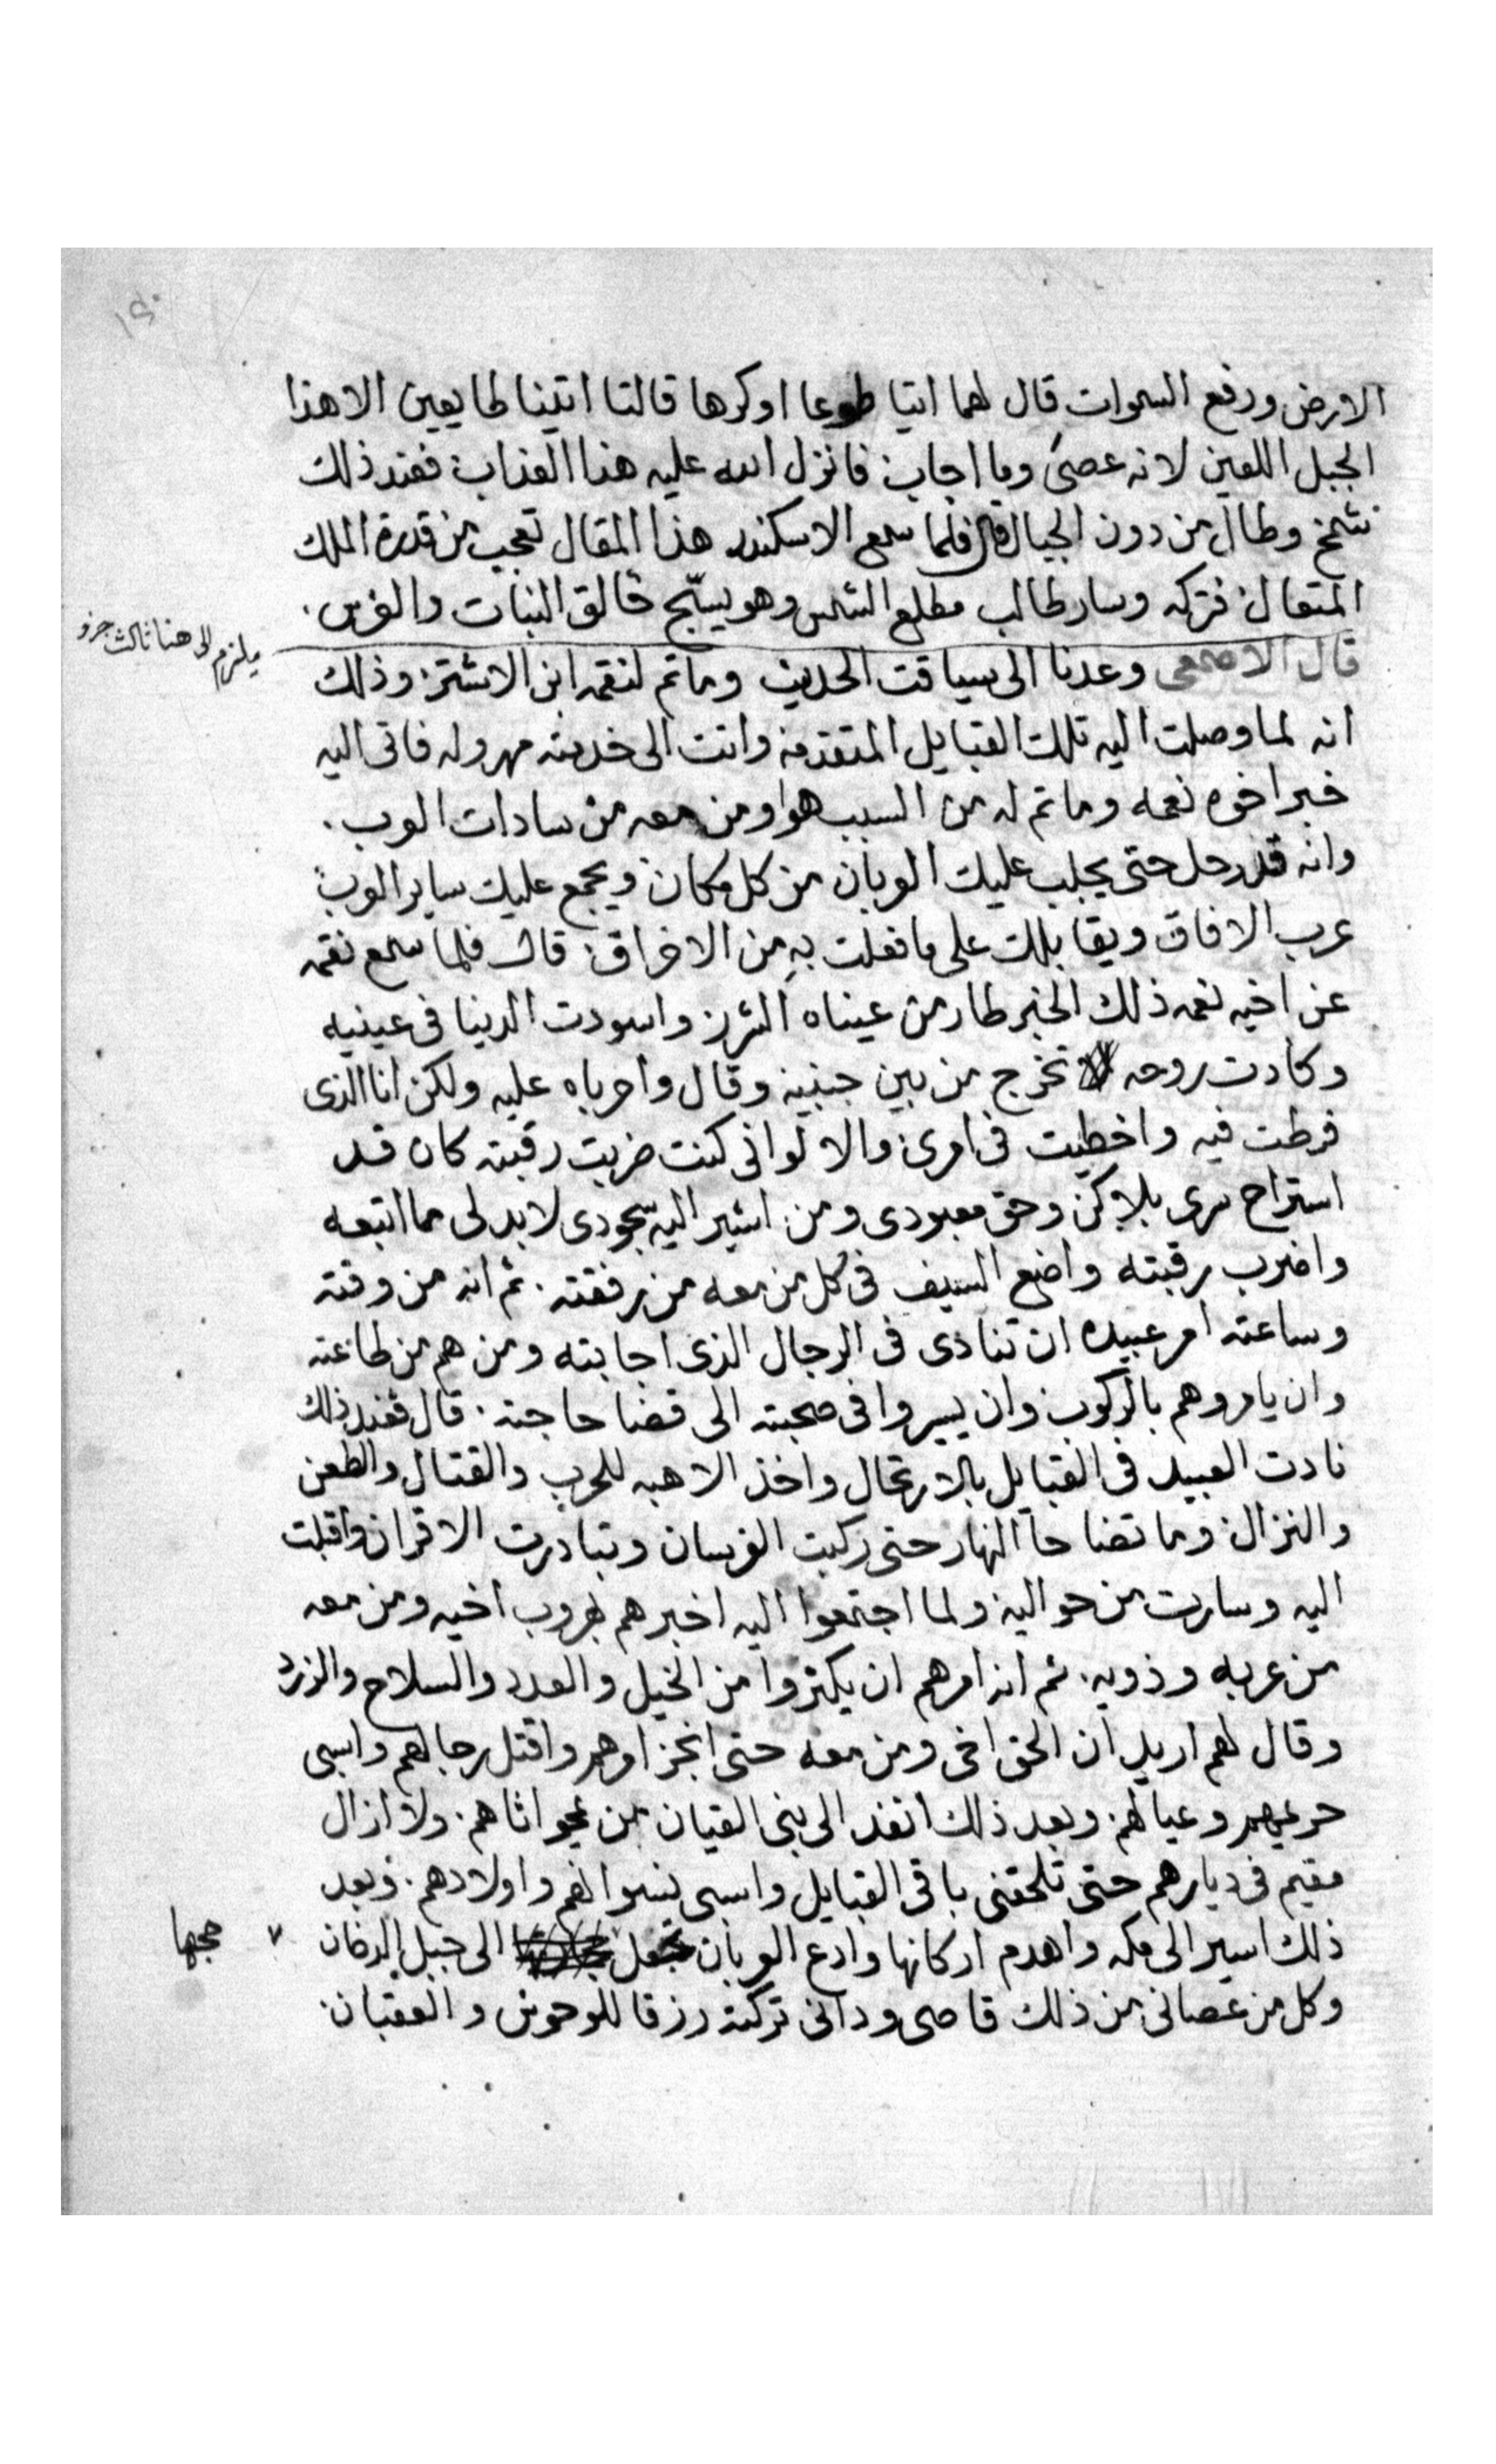 ١٢٠
الارض ورفع السموات قال لهما اتيا طوعا اوكرها قالتا اتينا طايعين الا هذا
الجبل اللعين لانه عصى وما اجاب فانزل الله عليه هذا العذاب فعند ذلك
تشمخ وطال من دون الجبال قال فلما سمع الاسكندر هذا المقال تعجب من قدرة الملك
المتعال فتركه وسار طالب مطلع الشمس وهو يسبّح خالق النبات والغرس
ميلزم الى هنا ثالث جزو
قال الاصمعى وعدنا الى سياقت الحديث وما تم لنقمه ابن الاشتر وذلك
انه لما وصلت اليه تلك القبايل المتقدمه واتت الى خدمته مهروله فاتى اليه
خبر اخوه نعمه وما تم له من السبب هو ومن معه من سادات العرب
وانه قد رحل حتى يجلب عليك العربان من كل مكان ويجمع عليك ساير العرب
عرب الافاق ويقابلك على ما فعلت به من الاخراق قال فلما سمع نقمه
عن اخيه نعمه ذلك الخبر طار من عيناه الشرر واسودت الدينا فى عينيه
وكادت روحه تخرج من بين جنبيه وقال واحرباه عليه ولكن انا الذى
فرطت فيه واخطيت فى امرى والا لو انى كنت ضربت رقبته كان قد
استراح سرى بلاكن وحق معبودى ومن اشير اليه بسجودى لابد لى مما اتبعه
واضرب رقبته واضع السيف فى كل من معه من رفقته ثم انه من وقته
وساعته امر عبيده ان تنادى فى الرجال الذى اجابته ومن هم من طاعته
وان يامروهم بالركوب وان يسيروا فى صحبته الى قضا حاجته قال فعند ذلك
نادت العبيد فى القبايل بالارتحال واخذ الاهبه للحرب والقتال والطعن
والنزال وما تضاحا النهار حتى ركبت الفرسان وتبادرت الاقران واقبلت
اليه وسارت من حواليه ولما اجتمعوا اليه اخبرهم بهروب اخيه ومن معه
من عربه وذويه ثم انه امرهم ان يكتروا من الخيل والعدد والسلاح والزرد
وقال لهم اريد ان الحق اخى ومن معه حتى انجز امرهم واقتل رجالهم واسبى
حريمهم وعيالهم وبعد ذلك انفد الى بنى القيان من غير اثاهم ولا ازال
مقيم فى ديارهم حتى تلحقنى باقى القبايل واسبى نسوانهم واولادهم وبعد
ذلك اسير الى مكه واهدم اركانها وادع العربان تجعل الى جبل الدخان
٧ حجها
وكل من عصانى من ذلك قاصى ودانى تركته رزقا للوحوش والعقبان